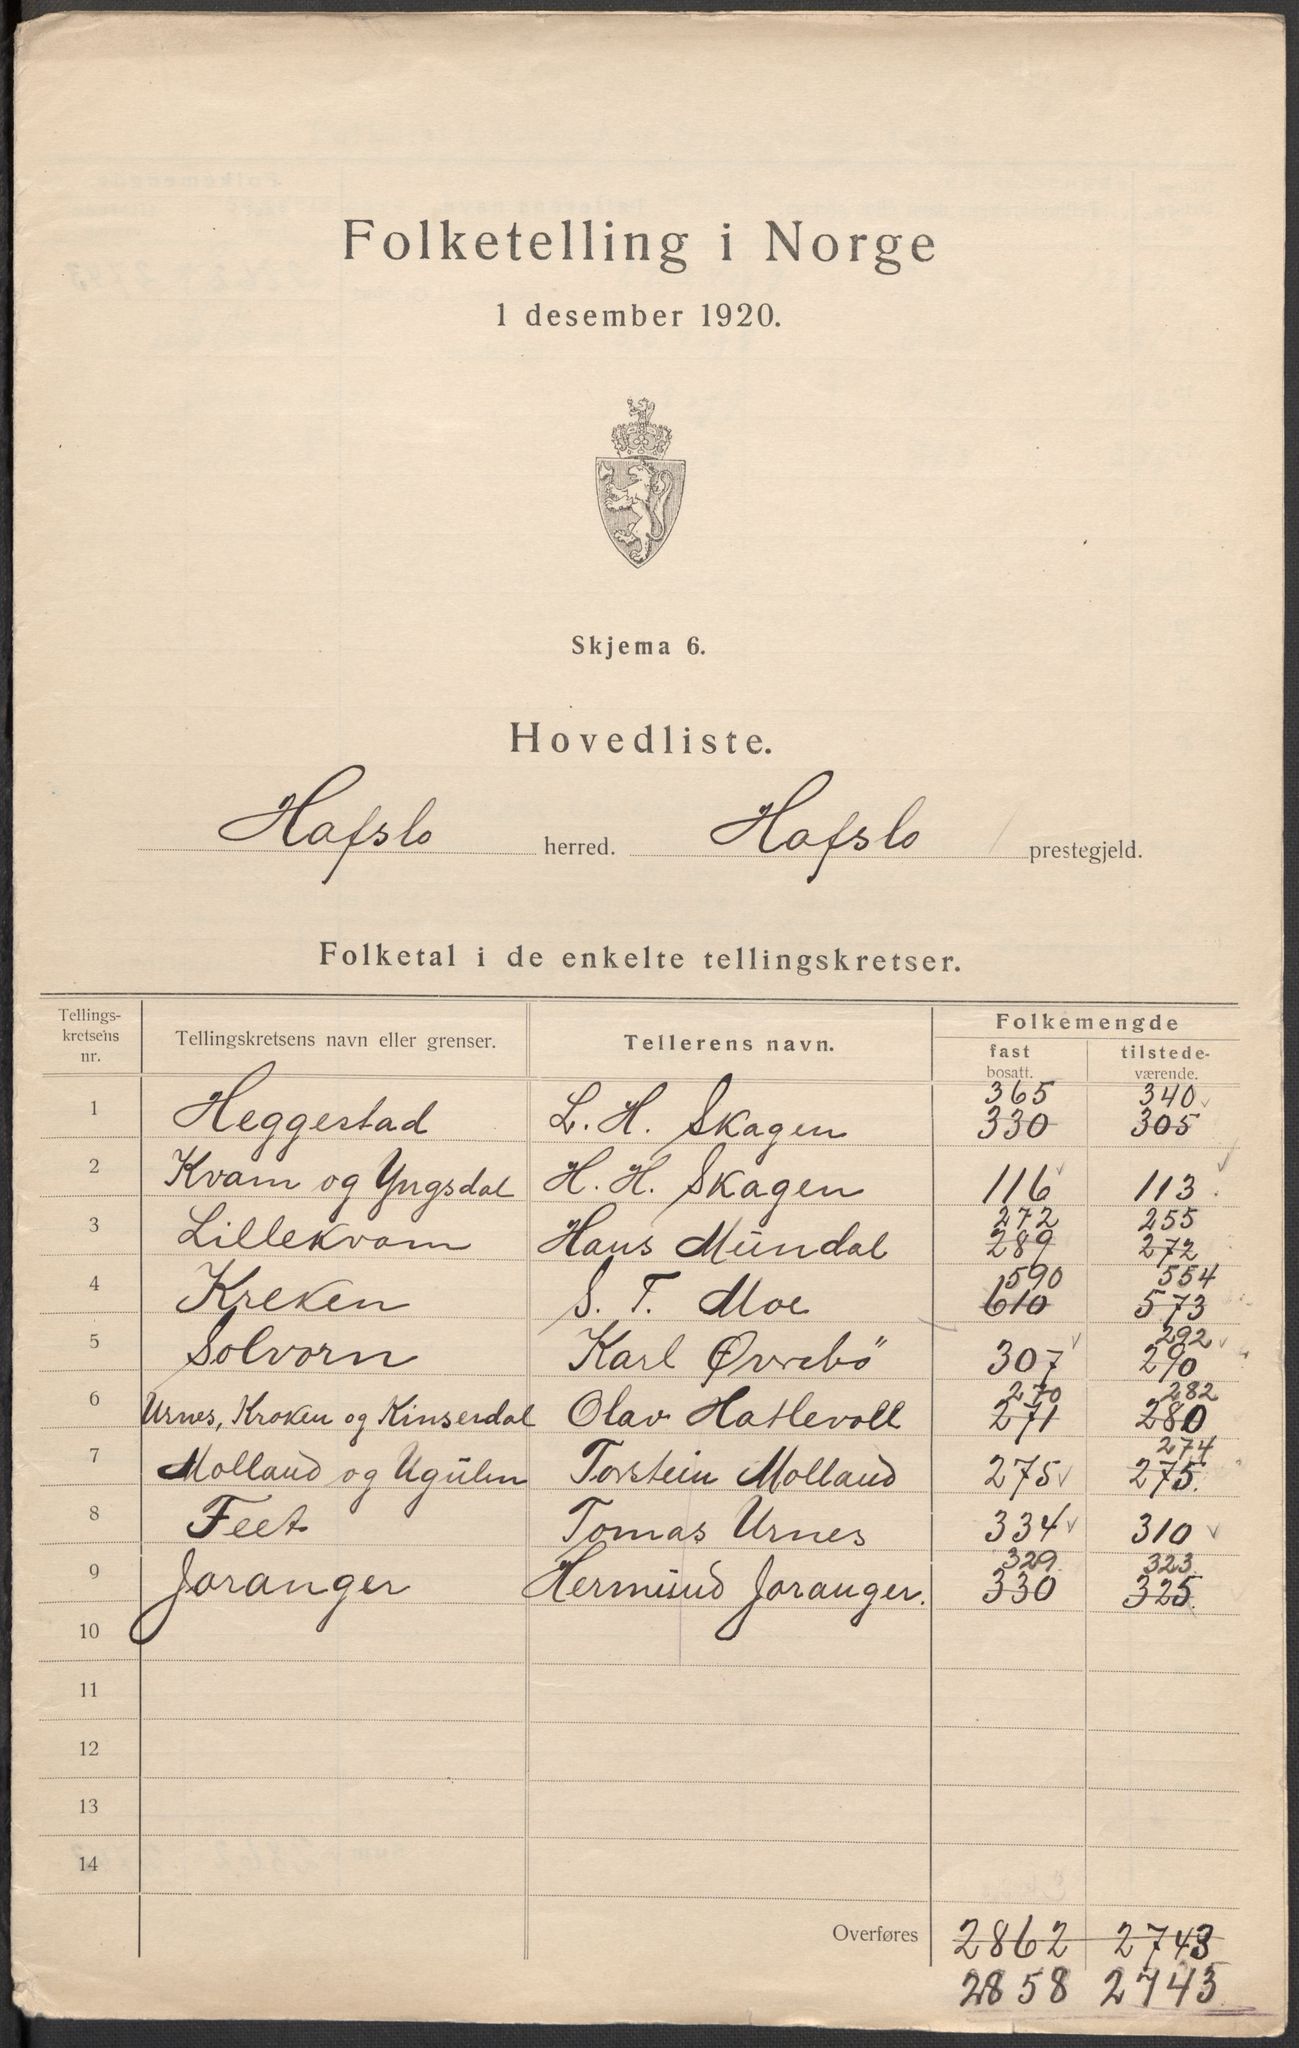 Folketelling i Norge
1 desember 1920.
Skjema 6.
Hovedliste.
Hafslo herred. Hafslo prestegjeld.
Folketal i de enkelte tellingskretser.
Tellings-kretsens nr. Tellingskretsens navn eller grenser. Tellerens navn. Folkemengde
fast bosatt. tilstede-værende.
365 340
1 Heggestad L. H. Skagen 330 305
2 Kvam og Yngsdal H. H. Skagen 116 113
272 255
3 Lillekvam Hans Mundal 289 272
590 554
4 Kreken S. T. Moe 610 573
292
5 Solvorn Karl Øvrebö 307 290
270 282
6 Urnes, Kroken og Kinserdal Olav Hatlevoll 271 280
274
7 Molland og Ugulen Torstein Molland 275 275
8 Feet Tomas Urnes 334 310
329 323
9 Joranger Hermund Joranger. 330 325
10
11
12
13
14
Overføres 2862 2743
2858 2743